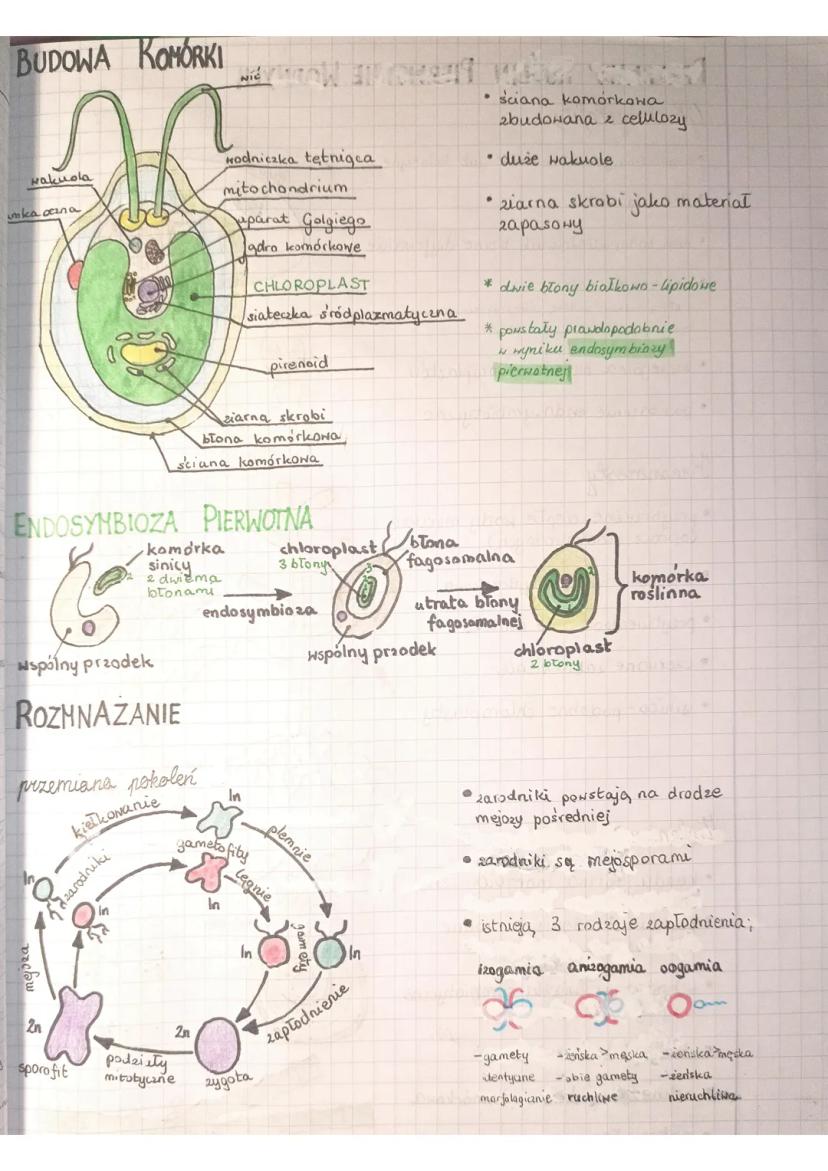 BUDOWA KOMÓRKI
nić
wodniczka tętniąca
wakuola
mitochondrium
aparat Golgiego
jądro komórkowe
CHLOROPLAST
siateczka śródplazmatyczna
pirenoid
ziarna skrobi
błona komórkowa
ściana komórkowa
• ściana komórkowa
zbudowana z celulozy
• duże wakuole
• ziarna skrobi jako materiał
zapasowy
* dwie błony białkowo-lipidowe
* powstały prawdopodobnie
w wyniku endosymbiozy
pierwotnej
ENDOSYMBIOZA PIERWOTNA
komórka
sinicy
z dwiema
błonami
2
wspólny przodek
endosymbioza
chloroplast
3 błony
3
błona
fagosomalna
wspólny przodek
utrata błony
fagosomalnej
2
chloroplast
2 błony
komórka
roślinna
ROZMNAŻANIE
przemiana pokoleń
kiełkowanie
1n
plemnie
gametofity
1n
lęgnie
1n
zarodniki
1n
1n
gamety
1n
mejoza
zapłodnienie
2n
sporofit
podziały
mitotyczne
2n
zygota
• zarodniki powstają na drodze
mejozy pośredniej
• zarodniki są mejosporami
• istnieją 3 rodzaje zapłodnienia;
izogamia anizogamia oogamia
-gamety -żeńska>męska -żeńska>męska
identyczne -obie gamety -żeńska
morfologicznie ruchliwe nieruchliwa